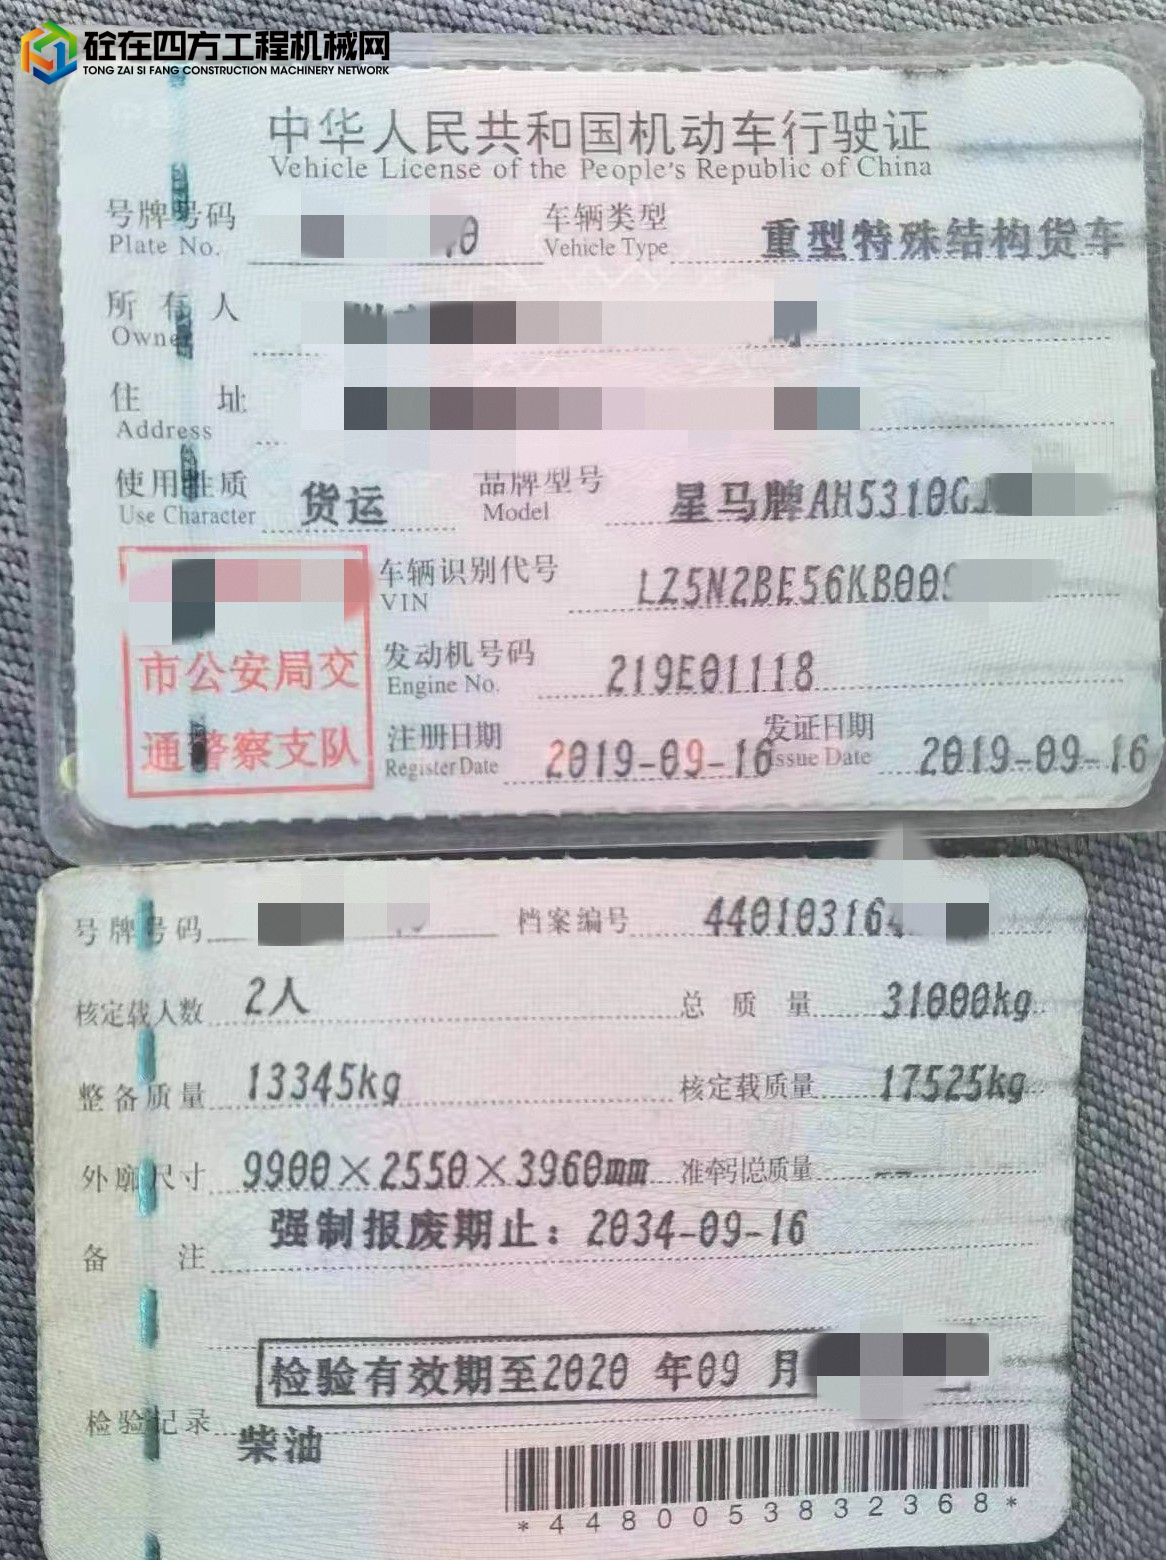 砼在四方工程机械网
TONG ZAI SI FANG CONSTRUCTION MACHINERY NETWORK
中华人民共和国机动车行驶证
Vehicle License of the People's Republic of China
号牌号码 0 车辆类型 重型特殊结构货车
Plate No. Vehicle Type
所有人
Owner
住址
Address
使用性质 货运 品牌型号 星马牌AH5310GJ
Use Character Model
车辆识别代号 LZ5N2BE56KB009
VIN
市公安局交
通警察支队
发动机号码 219E01118
Engine No.
注册日期 2019-09-16 发证日期 2019-09-16
Register Date Issue Date
号牌号码 档案编号 440103164
核定载人数 2人 总质量 31000kg
整备质量 13345kg 核定载质量 17525kg
外廓尺寸 9900×2550×3960mm 准牵引总质量 --
备注 强制报废期止：2034-09-16
检验有效期至2020 年09 月
检验记录 柴油
*4480053832368*